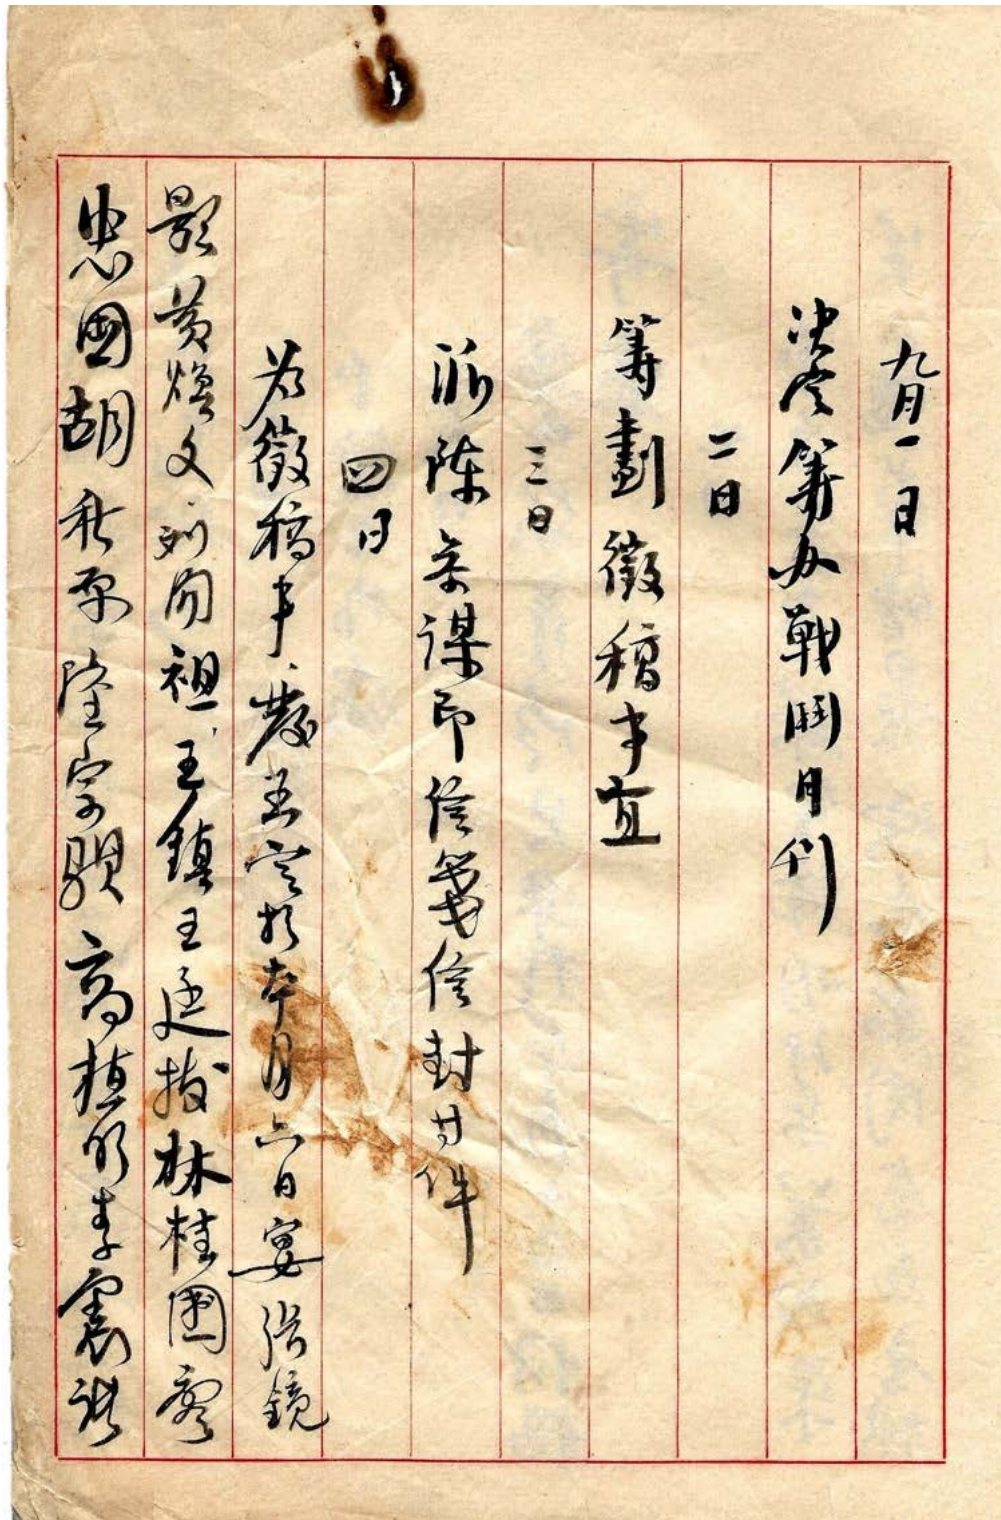 九月一日
决定筹办戰鬪月刊
二日
筹劃徵稿事宜
三日
派陈参谋印信箋信封廿件
四日
为徵稿事、發函定於本月六日宴張鏡
影黄煥文刘閑祖、王鎮王廷拔林桂圃廖
忠國胡秋原陸宗騏高植明李震諸